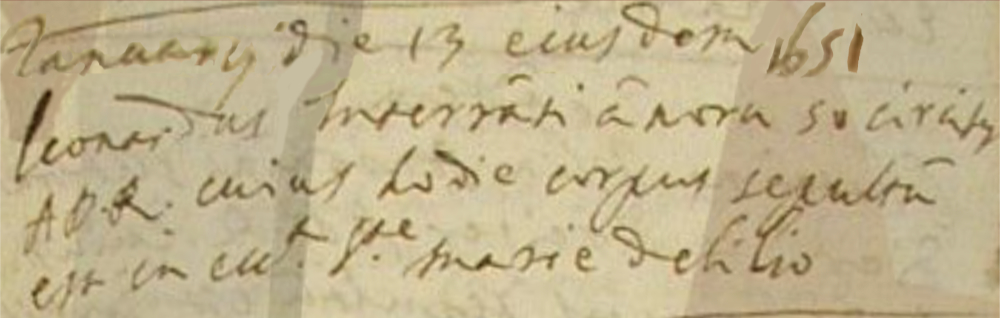 Januarij die 13 eiusdem 1651
Leonardus Interrãti ãnoru 50 circiter
A D R. cuius hodie corpus sepultũ
est in eccl.ª S.te marie de lilio